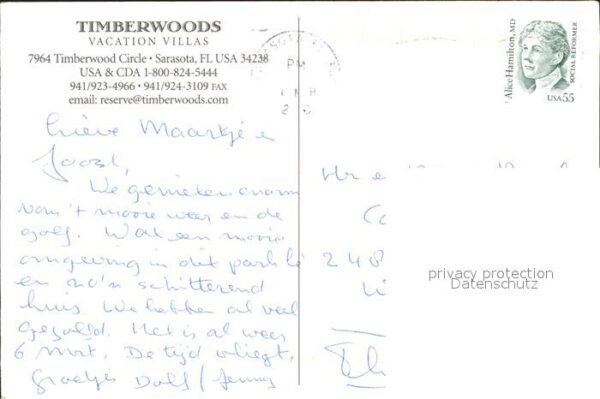 TIMBERWOODS
VACATION VILLAS
7964 Timberwood Circle • Sarasota, FL USA 34238
USA & CDA 1-800-824-5444
941/923-4966 • 941/924-3109 FAX
email: reserve@timberwoods.com
PM
Alice Hamilton, MD
SOCIAL REFORMER
USA 55
Lieve Maartje e
Joost,
We genieten enorm
van 't mooie weer en de
golf. Wat een mooie
omgeving in dit park
en zo'n schitterend
huis. We hebben al veel
gegolfd. Het is al weer
6 mrt. De tijd vliegt.
Groetjes Dolf / Jenny
248
privacy protection
Datenschutz